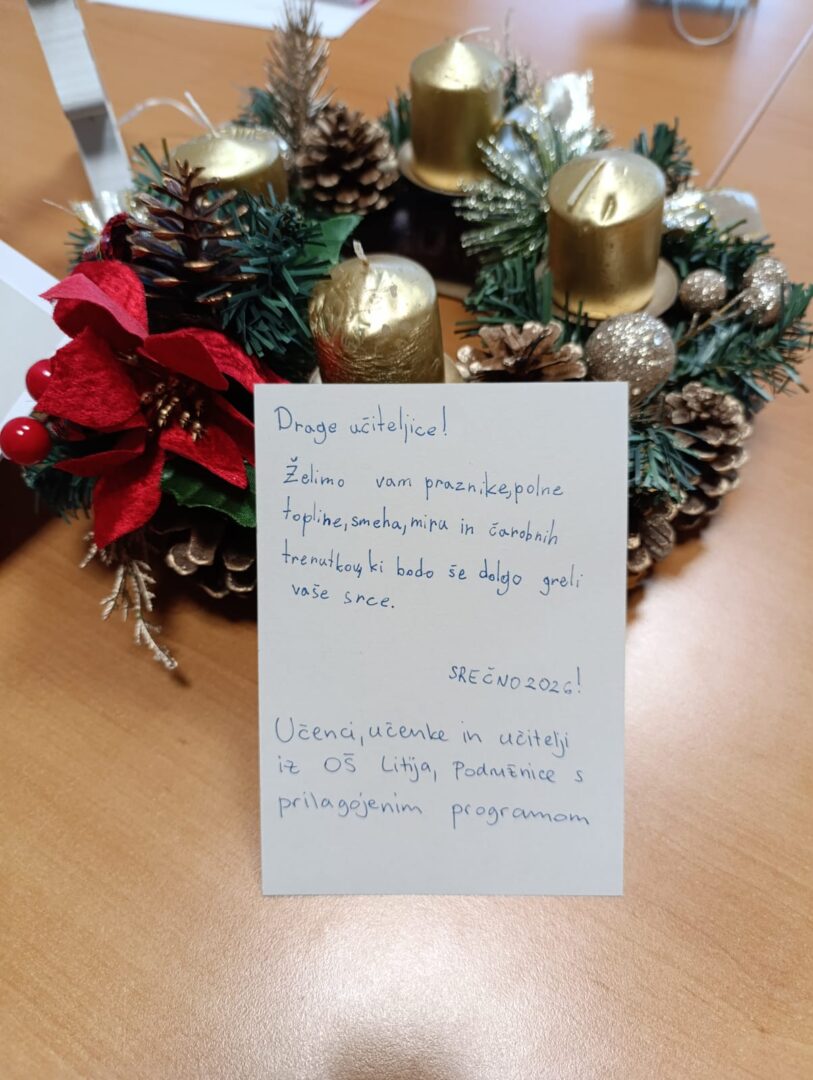 Drage učiteljice!
Želimo vam praznike, polne
topline, smeha, miru in čarobnih
trenutkov, ki bodo še dolgo greli
vaše srce.
SREČNO 2026!
Učenci, učenke in učitelji
iz OŠ Litija, Podružnice s
prilagojenim programom